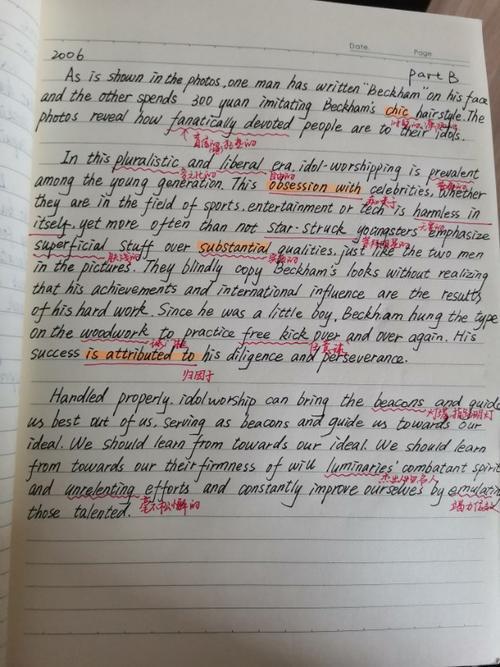 Date. Page
2006
Part B
As is shown in the photos, one man has written "Beckham" on his face
and the other spends 300 yuan imitating Beckham's chic hairstyle. The
photos reveal how fanatically devoted people are to their idols.
In this pluralistic and liberal era, idol-worshipping is prevalent
多元化的
among the young generation. This obsession with celebrities, whether
they are in the field of sports, entertainment or tech is harmless in
itself, yet more often than not star-struck youngsters emphasize
superficial stuff over substantial qualities, just like the two men
肤浅的
in the pictures. They blindly copy Beckham's looks without realizing
that his achievements and international influence are the results
of his hard work. Since he was a little boy, Beckham hung the type
on the woodwork to practice free kick over and over again. His
任意球
success is attributed to his diligence and perseverance.
归因于
Handled properly, idolworship can bring the beacons and guide
us best out of us, serving as beacons and guide us towards our
ideal. We should learn from towards our ideal. We should learn
from towards our their firmness of will luminaries' combatant spirit
and unrelenting efforts and constantly improve ourselves by emulating
毫不松懈的
those talented.